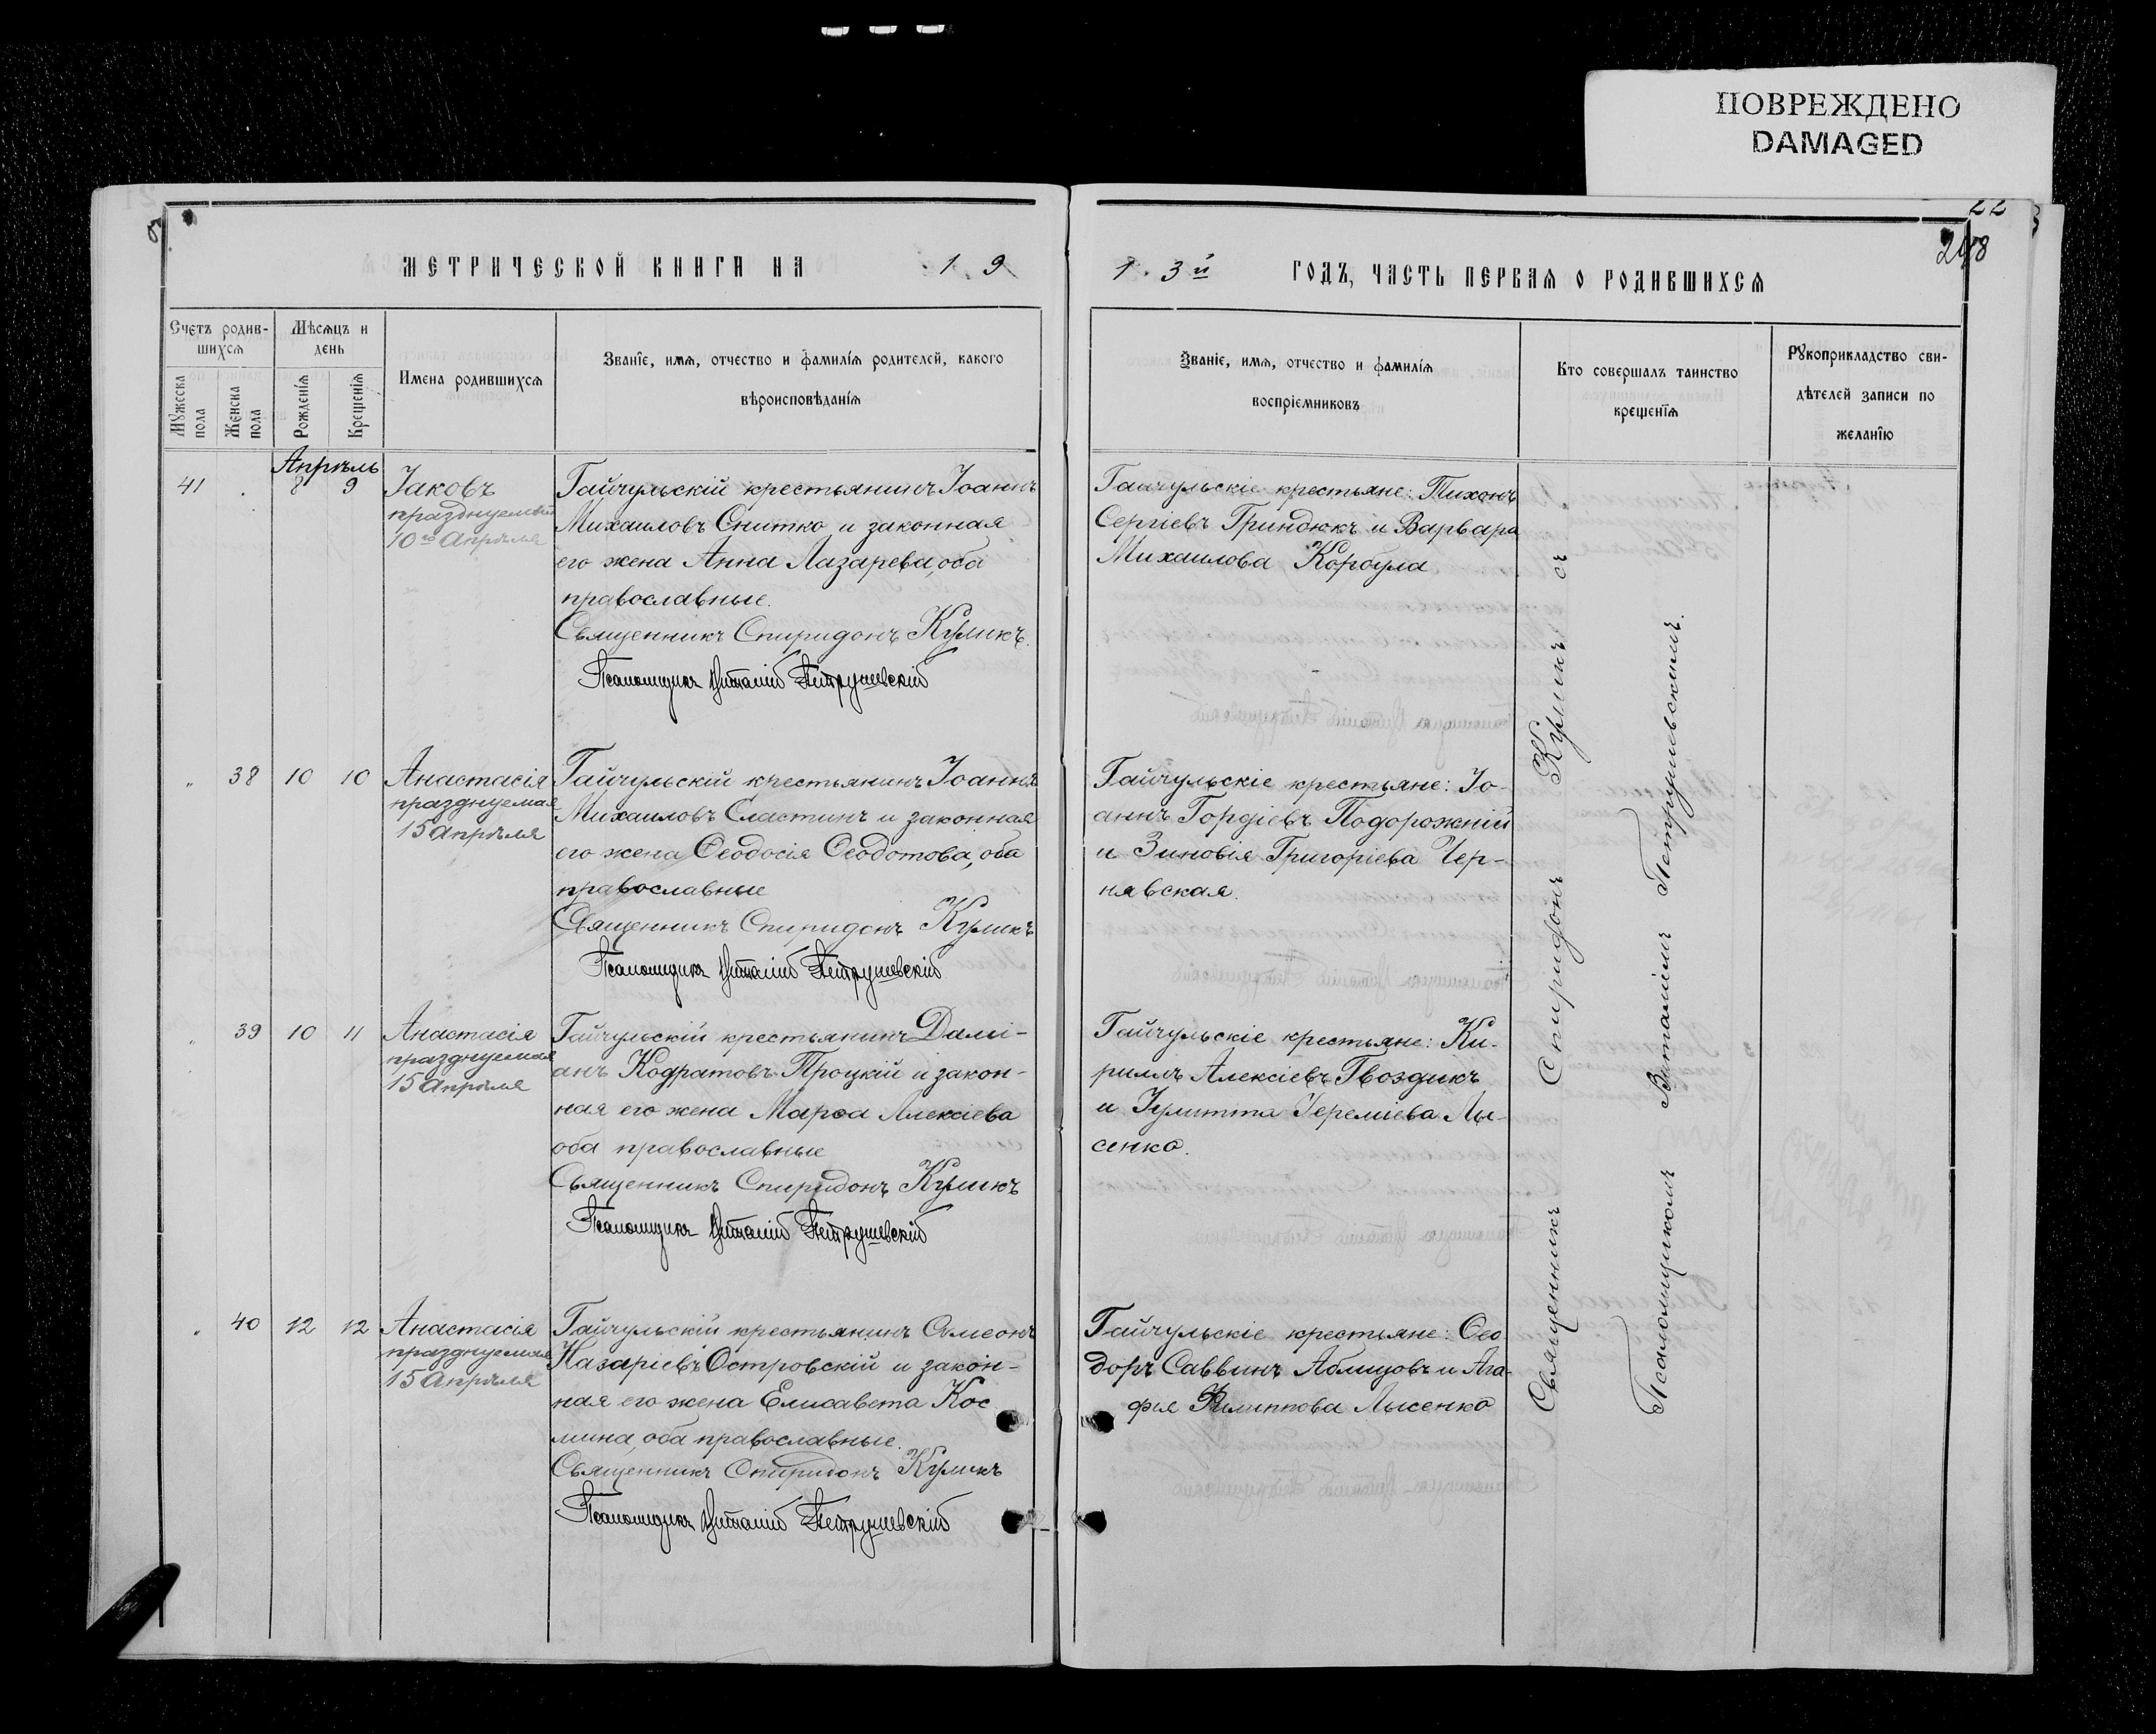 ПОВРЕЖДЕНО
DAMAGED
22
248
МЕТРИЧЕСКОЙ КНИГИ НА 19
13й ГОДЪ, ЧАСТЬ ПЕРВАЯ О РОДИВШИХСЯ
Счетъ родив-
шихся
Мужеска
пола
Женска
пола
Мѣсяцъ и
день
Рожденія
Крещенія
Имена родившихся
Званіе, имя, отчество и фамилія родителей, какого
вѣроисповѣданія
Званіе, имя, отчество и фамилія
воспріемниковъ
Кто совершалъ таинство
крещенія
Рукоприкладство сви-
дѣтелей записи по
желанію
Апрѣль
41 8 9
Іаковъ
празднуемый
10го Апрѣля
Гайчульскій крестьянинъ Іоаннъ
Михаиловъ Снитко и законная
его жена Анна Лазарева, оба
православные.
Священникъ Спиридонъ Куликъ.
Псаломщикъ Виталій Петрушевскій
Гайчульскіе крестьяне: Тихонъ
Сергіевъ Гриндюкъ и Варвара
Михаилова Корбула
„ 38 10 10
Анастасія
празднуемая
15 Апрѣля
Гайчульскій крестьянинъ Іоаннъ
Михаиловъ Сластинъ и законная
его жена Ѳеодосія Ѳеодотова, оба
православные
Священникъ Спиридонъ Куликъ
Псаломщикъ Виталій Петрушевскій
Гайчульскіе крестьяне: Іо-
аннъ Гордіевъ Подорожній
и Зиновія Григоріева Чер-
нявская.
„ 39 10 11
Анастасія
празднуемая
15 Апрѣля
Гайчульскій крестьянинъ Дамі-
анъ Кодратовъ Троцкій и закон-
ная его жена Марѳа Алексіева
оба православные
Священникъ Спиридонъ Куликъ
Псаломщикъ Виталій Петрушевскій
Гайчульскіе крестьяне: Ки-
риллъ Алексіевъ Гвоздикъ
и Іулитта Іереміева Лы-
сенко.
„ 40 12 12
Анастасія
празднуемая
15 Апрѣля
Гайчульскій крестьянинъ Симеонъ
Назаріевъ Островскій и закон-
ная его жена Елисавета Кос
мина, оба православные.
Священникъ Спиридонъ Куликъ
Псаломщикъ Виталій Петрушевскій
Гайчульскіе крестьяне: Ѳео
доръ Саввинъ Аблицовъ и Ага-
фія Филиппова Лысенко
Священникъ Спиридонъ Куликъ съ
Псаломщикомъ Виталіемъ Петрушевскимъ.